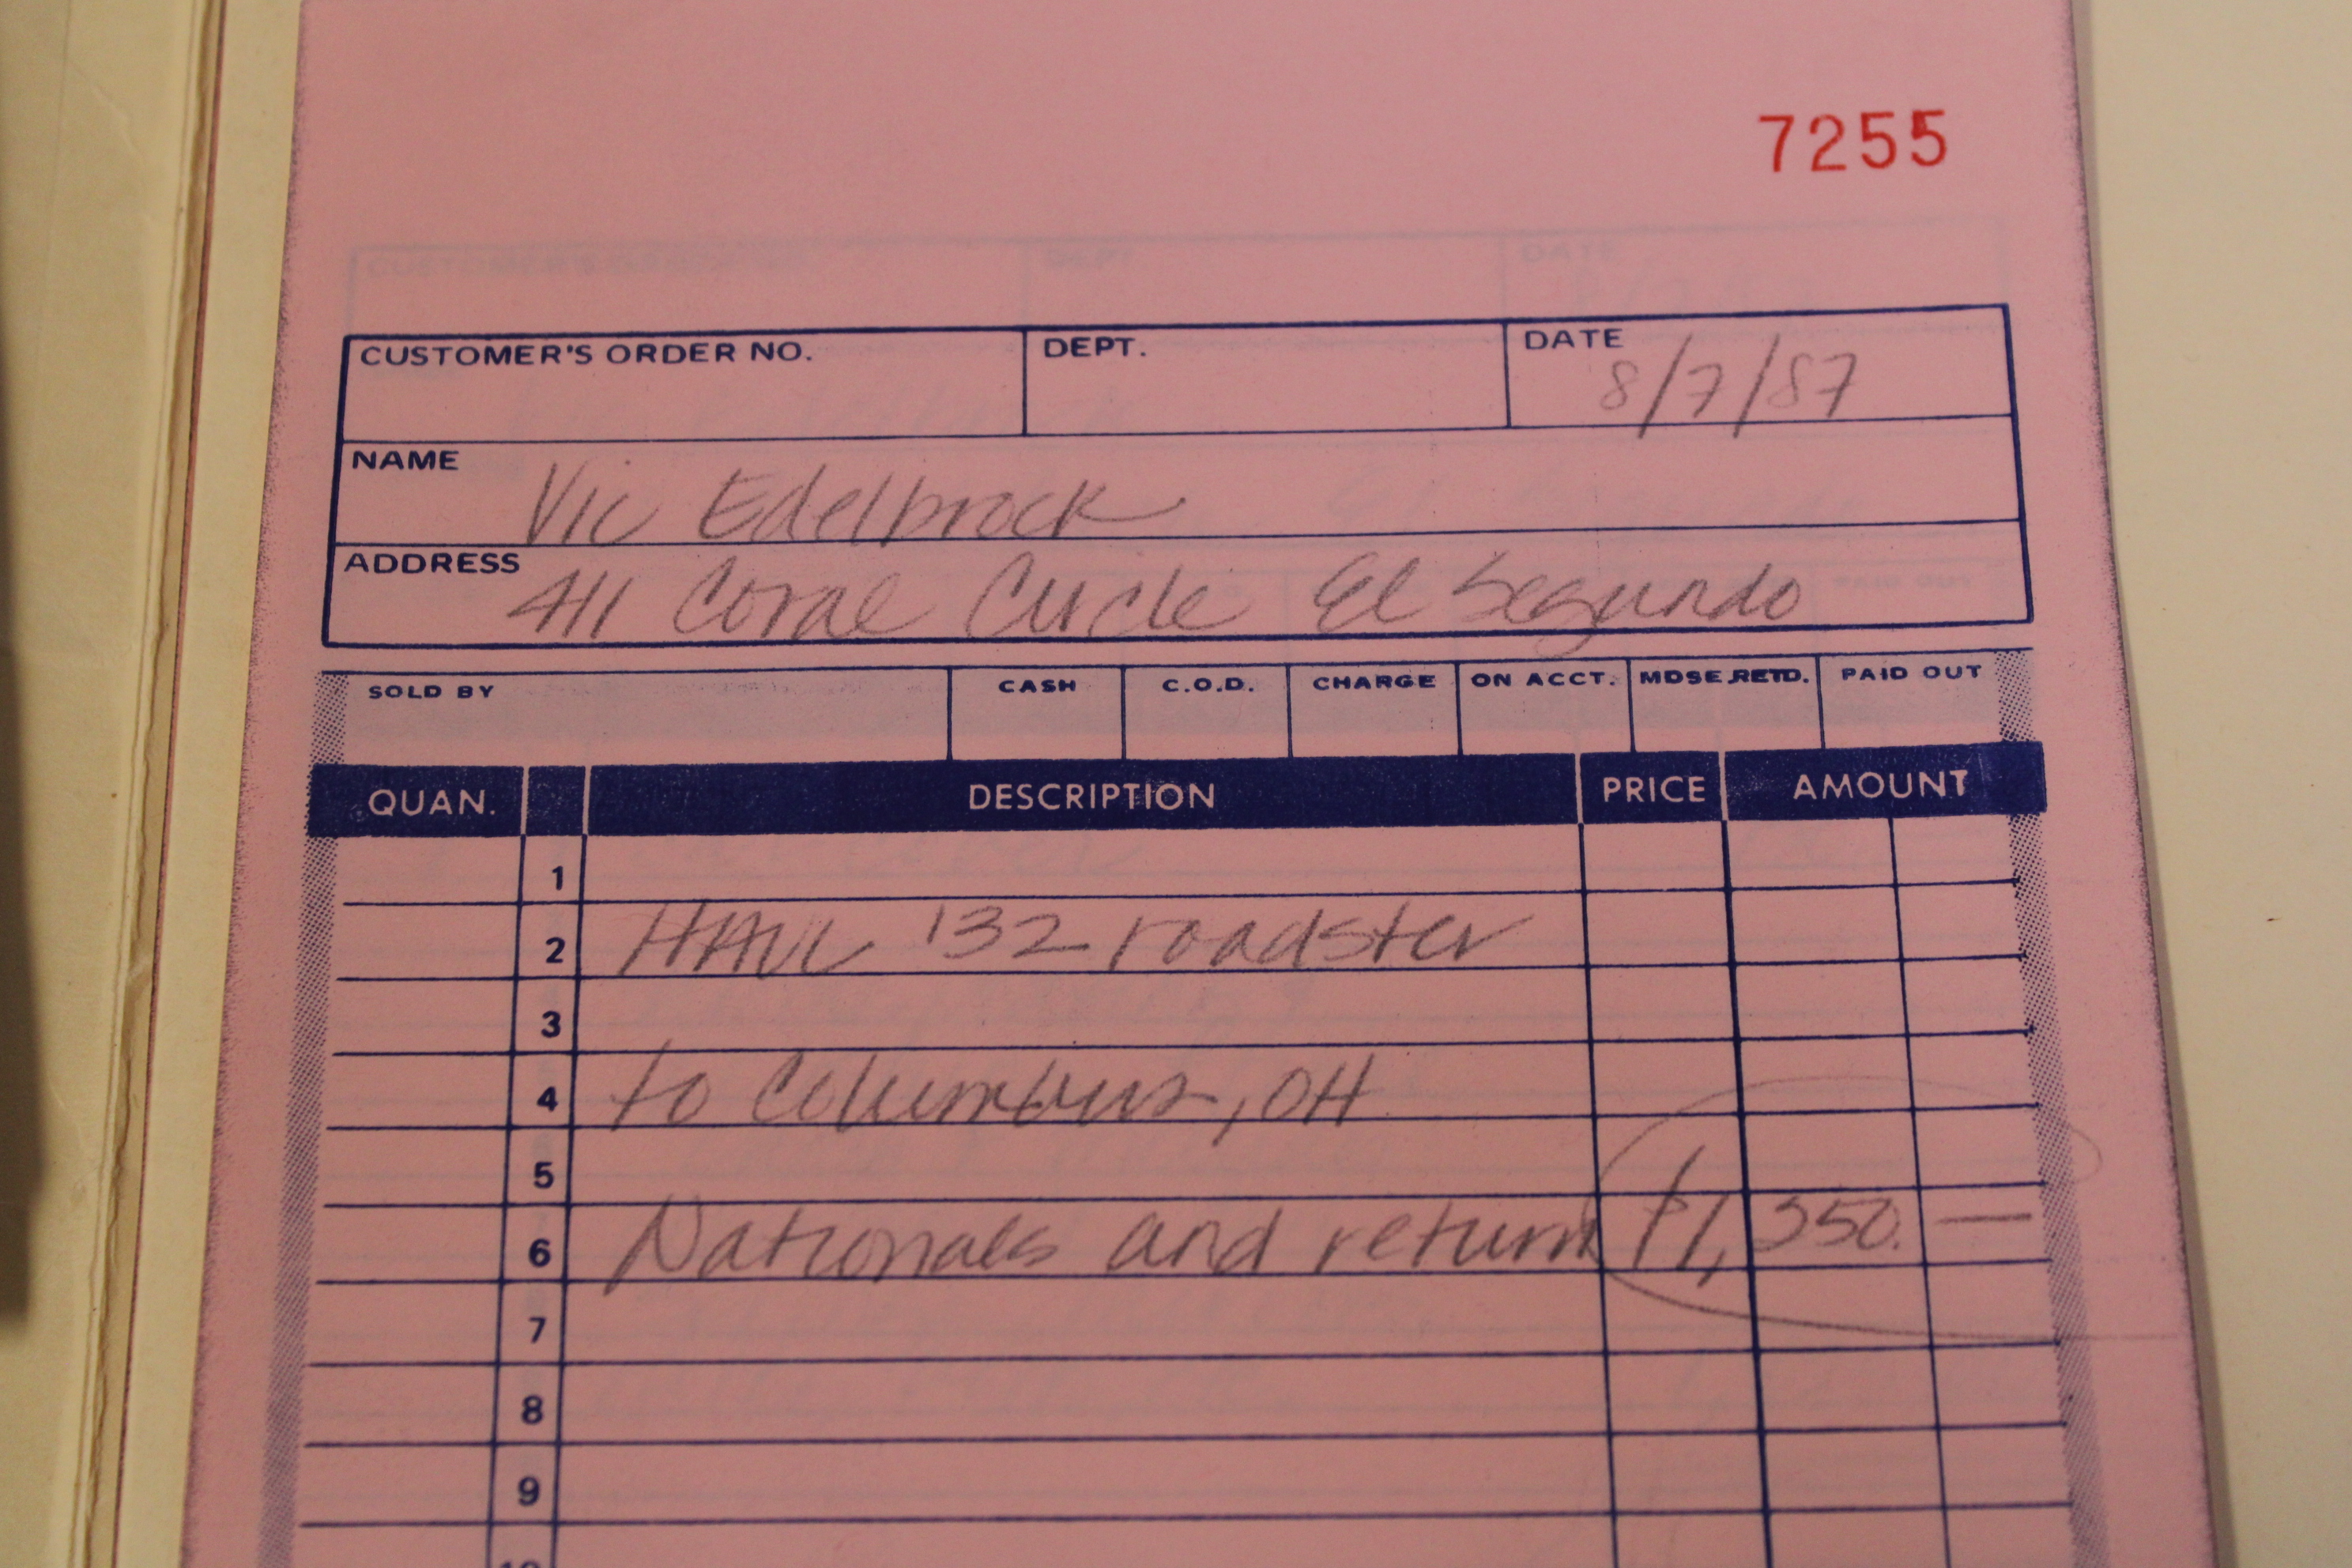 7255
CUSTOMER'S ORDER NO. DEPT. DATE 8/7/87
NAME Vic Edelbrock
ADDRESS 411 Coral Circle El Segundo
SOLD BY CASH C.O.D. CHARGE ON ACCT. MDSE.RETD. PAID OUT
QUAN. DESCRIPTION PRICE AMOUNT
1
2 HAUL '32 roadster
3
4 to Columbus, OH
5
6 Nationals and return $1,350. —
7
8
9
10